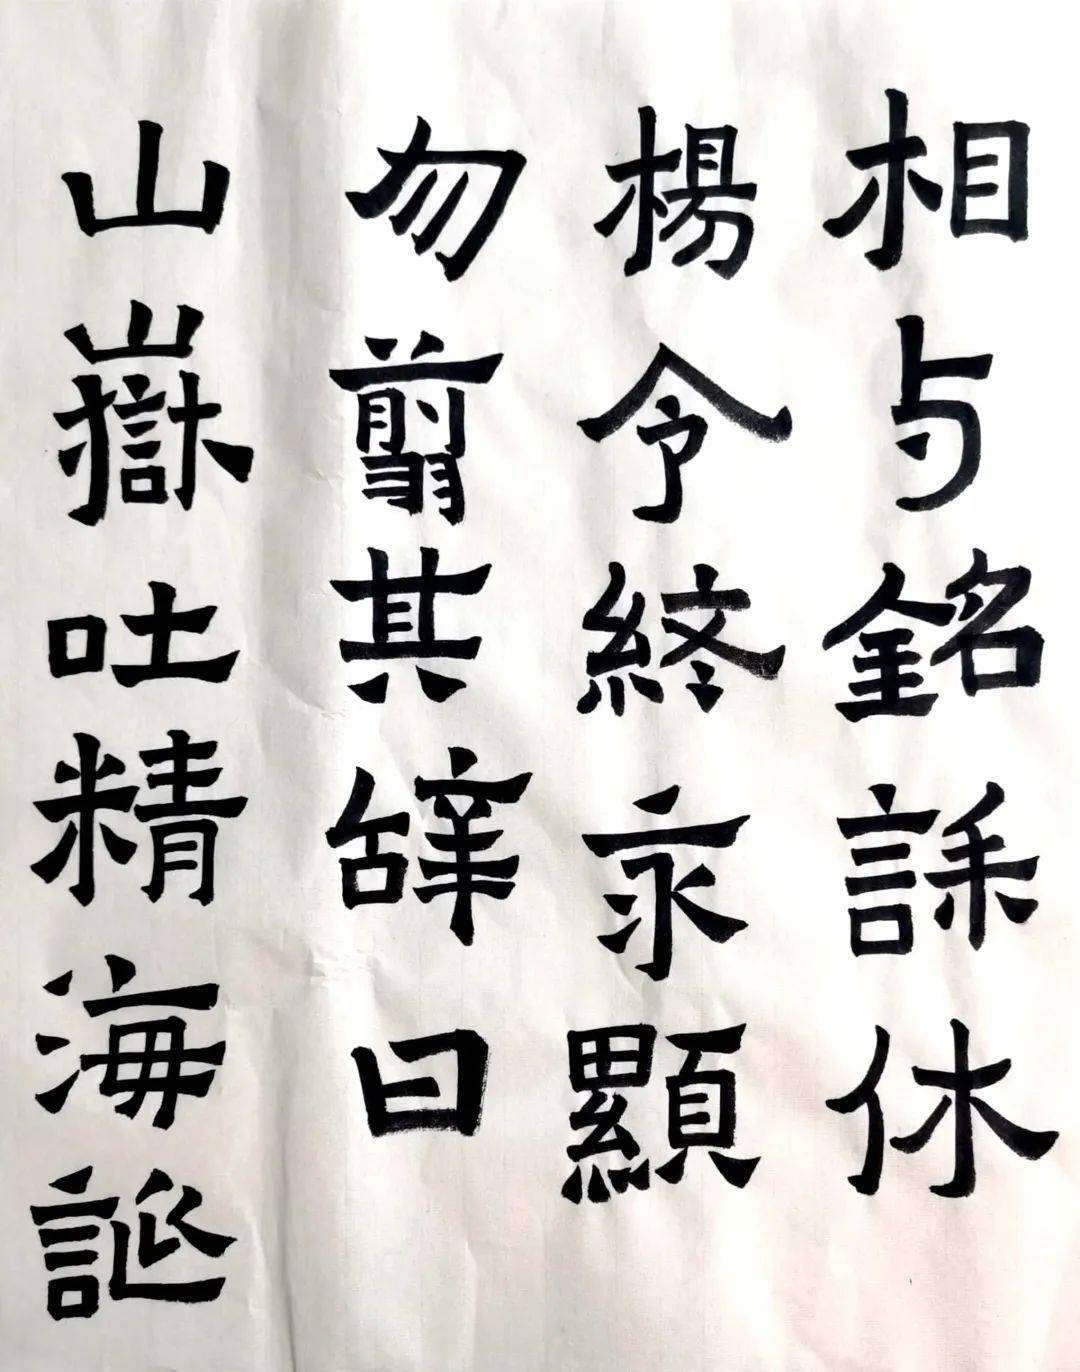 相与銘誄休
楊令終永顯
勿翦其辝曰
山嶽吐精海誕